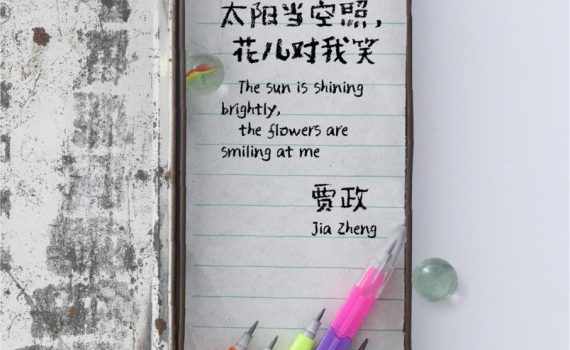 太阳当空照，
花儿对我笑
The sun is shining
brightly,
the flowers are
smiling at me
贾政
Jia Zheng